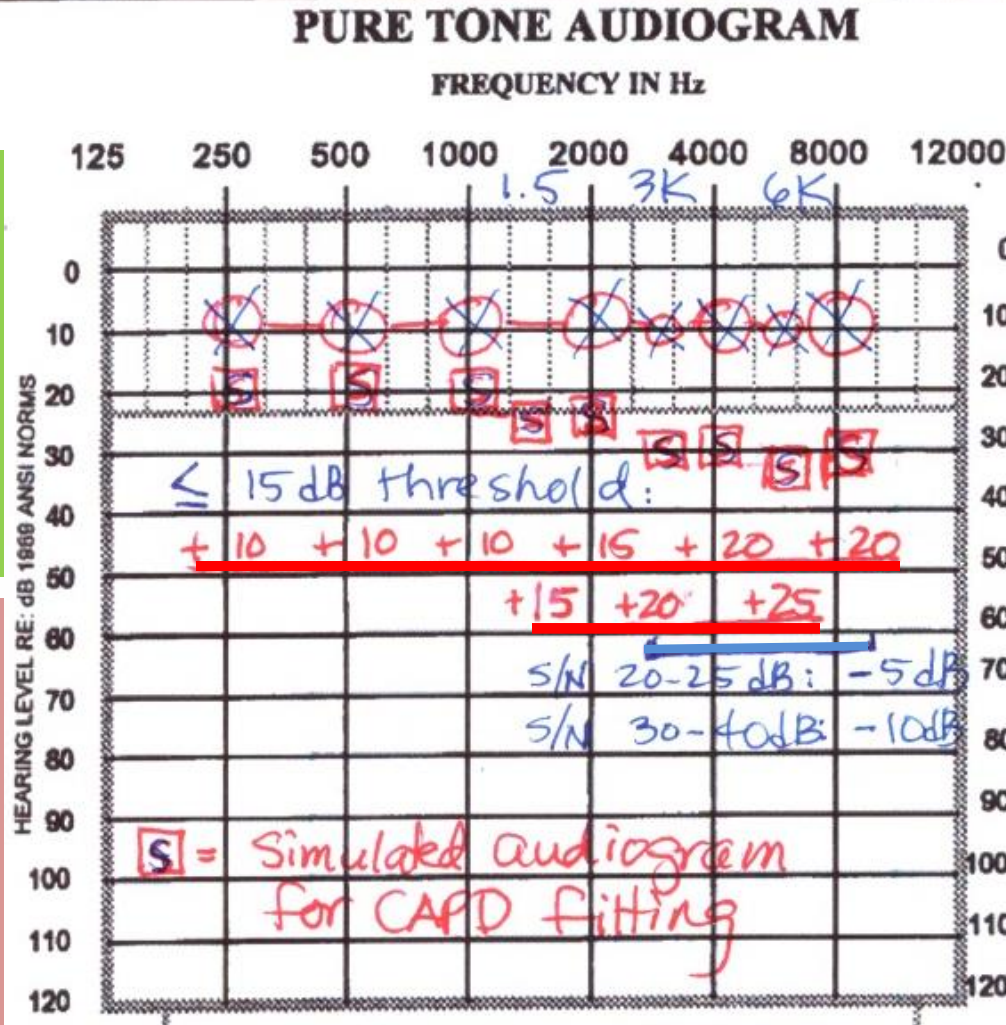 PURE TONE AUDIOGRAM
FREQUENCY IN Hz
125 250 500 1000 2000 4000 8000 12000
1.5 3K 6K
HEARING LEVEL RE: dB 1969 ANSI NORMS
0 0
10 10
20 20
30 30
40 40
50 50
60 60
70 70
80 80
90 90
100 100
110 110
120 120
S S S S S S S S S
≤ 15 dB threshold:
+10 +10 +10 +15 +20 +20
+15 +20 +25
S/N 20-25 dB: -5 dB
S/N 30-40dB: -10dB
S = Simulated audiogram
for CAPD fitting